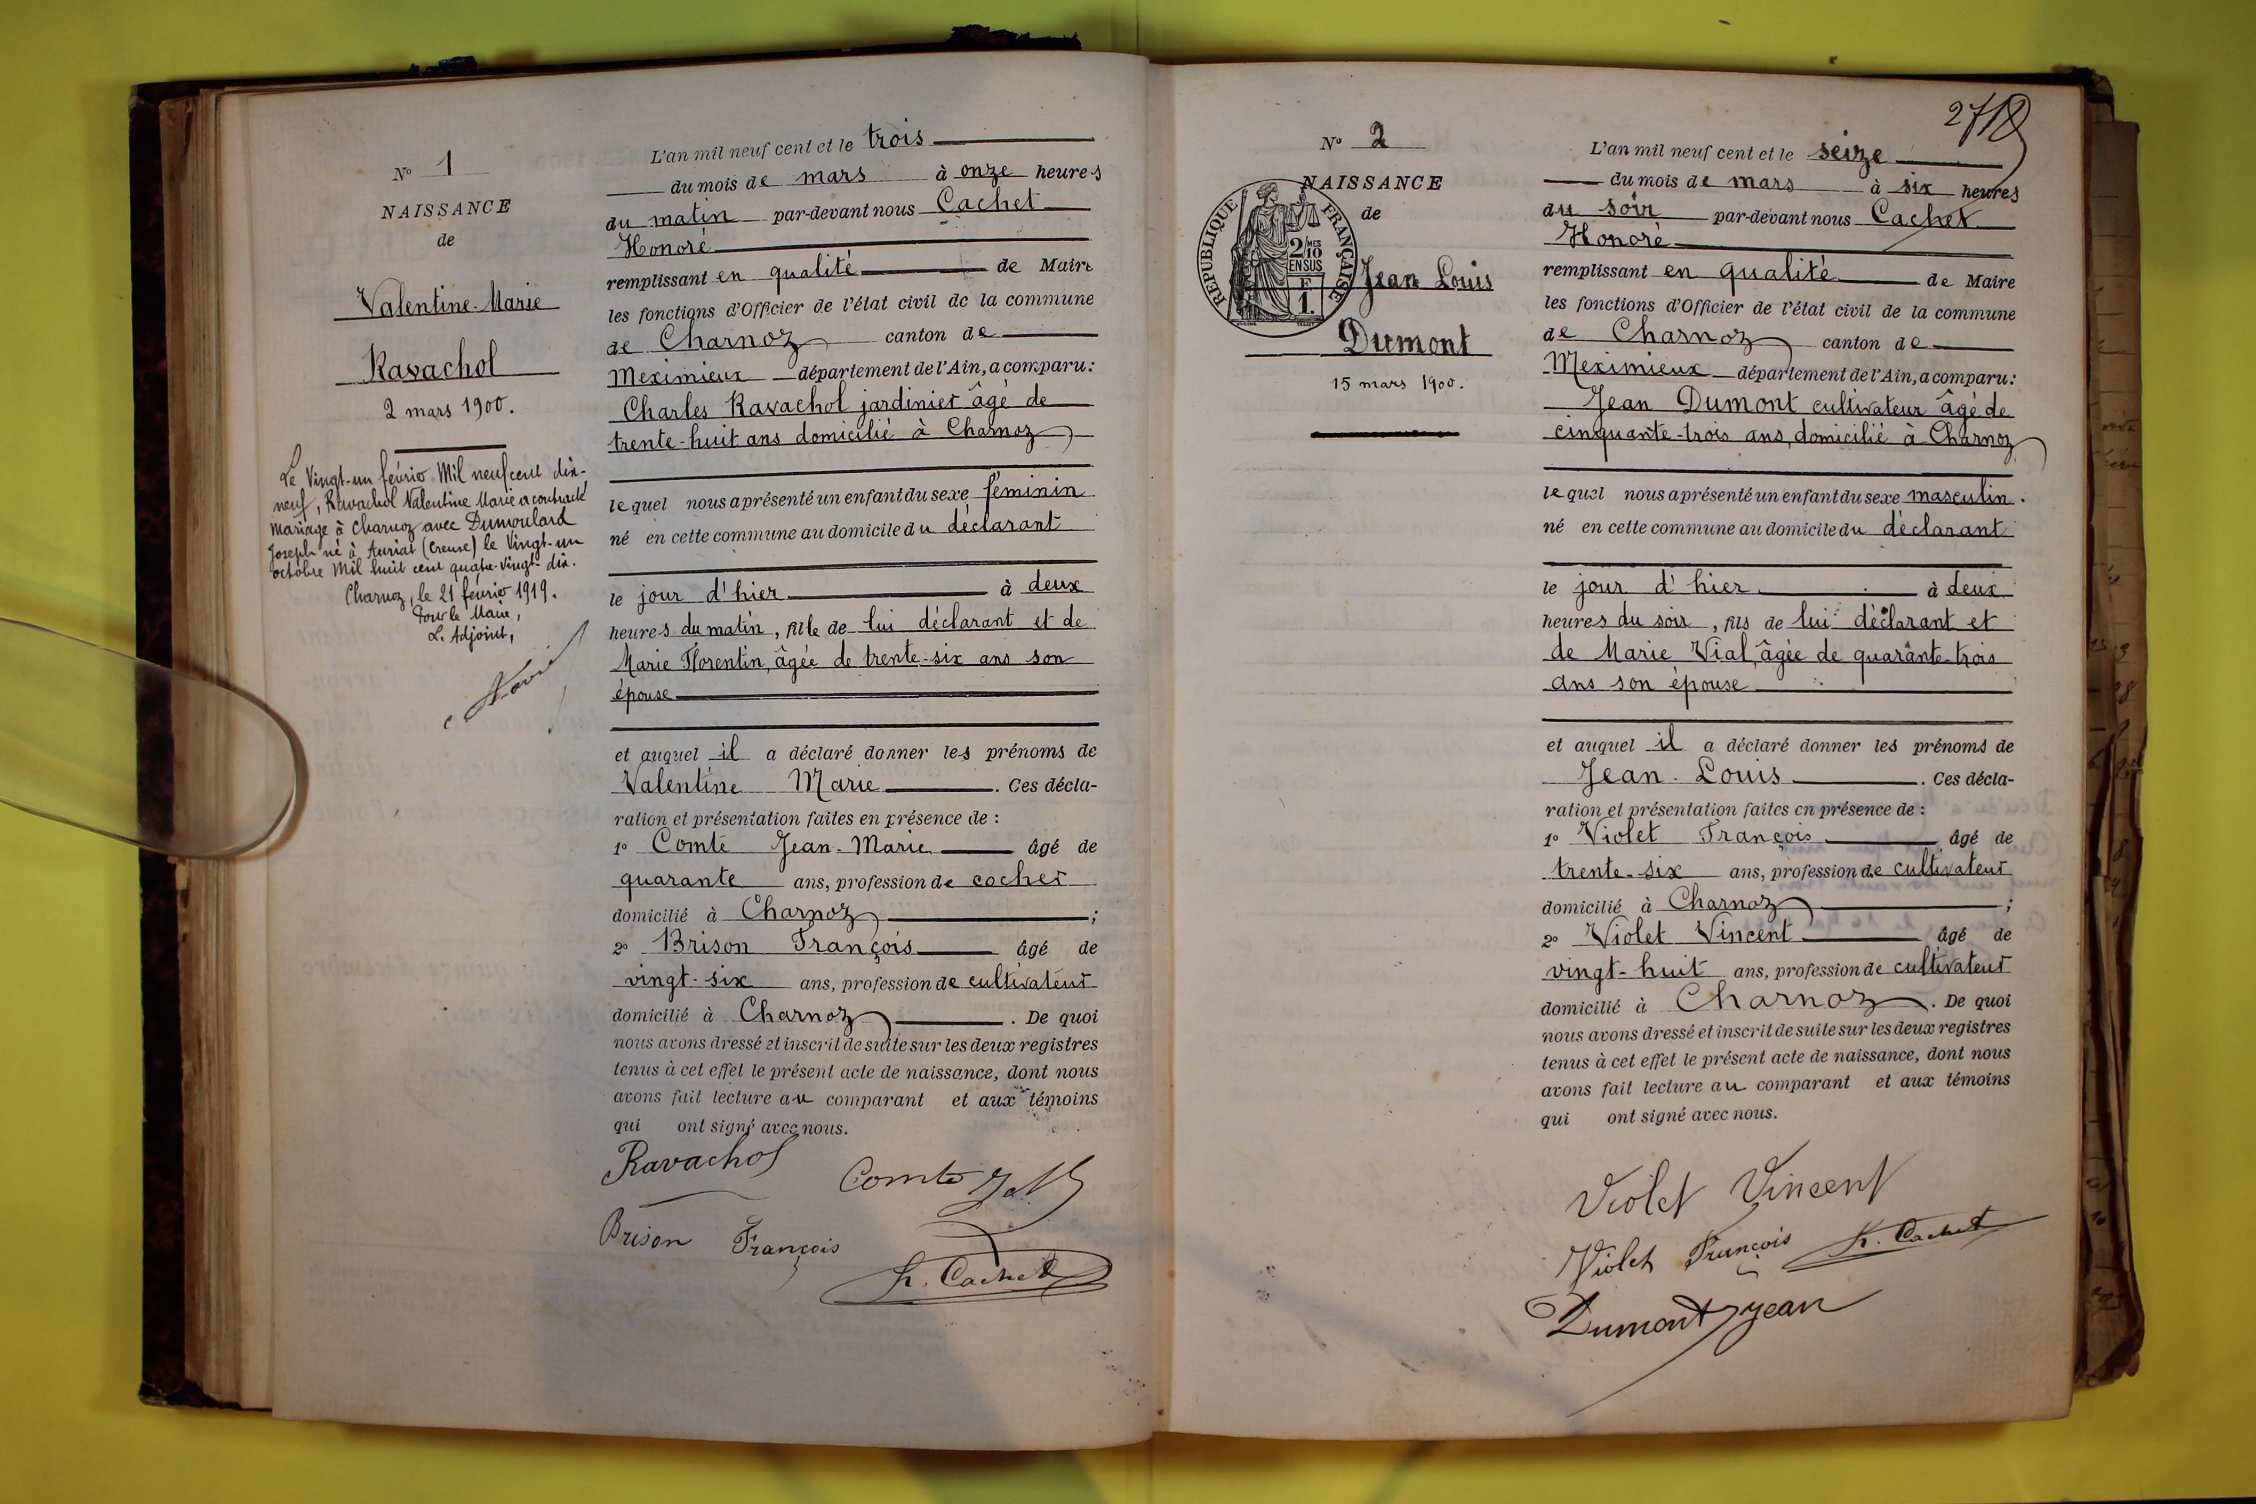 N° 1
NAISSANCE
de
Valentine-Marie
Ravachol
2 mars 1900.
Le Vingt-un février Mil neuf cent dix-
neuf, Ravachol Valentine Marie a contracté
mariage à Charnoz avec Dumoulard
Joseph né à Auriat (Creuse) le Vingt-un
octobre Mil huit cent quatre-vingt-dix.
Charnoz, le 21 février 1919.
Pour le Maire,
L'Adjoint,
L'an mil neuf cent et le trois
du mois de mars à onze heures
du matin par-devant nous Cachet
Honoré
remplissant en qualité de Maire
les fonctions d'Officier de l'état civil de la commune
de Charnoz canton de
Meximieux département de l'Ain, a comparu:
Charles Ravachol jardinier âgé de
trente-huit ans domicilié à Charnoz
lequel nous a présenté un enfant du sexe féminin
né en cette commune au domicile du déclarant
le jour d'hier à deux
heures du matin, fille de lui déclarant et de
Marie Florentin, âgée de trente-six ans son
épouse
et auquel il a déclaré donner les prénoms de
Valentine Marie. Ces décla-
ration et présentation faites en présence de :
1° Comte Jean-Marie âgé de
quarante ans, profession de cocher
domicilié à Charnoz ;
2° Brison François âgé de
vingt-six ans, profession de cultivateur
domicilié à Charnoz. De quoi
nous avons dressé et inscrit de suite sur les deux registres
tenus à cet effet le présent acte de naissance, dont nous
avons fait lecture au comparant et aux témoins
qui ont signé avec nous.
Ravachol
Comte J M
Brison François
H. Cachet
N° 2
NAISSANCE
de
REPUBLIQUE FRANÇAISE
2/10 MES
EN SUS
F
1.
Jean Louis
Dumont
15 mars 1900.
L'an mil neuf cent et le seize
du mois de mars à six heures
du soir par-devant nous Cachet
Honoré
remplissant en qualité de Maire
les fonctions d'Officier de l'état civil de la commune
de Charnoz canton de
Meximieux département de l'Ain, a comparu:
Jean Dumont cultivateur âgé de
cinquante-trois ans, domicilié à Charnoz
lequel nous a présenté un enfant du sexe masculin.
né en cette commune au domicile du déclarant
le jour d'hier à deux
heures du soir, fils de lui déclarant et
de Marie Vial, âgée de quarante-trois
ans son épouse
et auquel il a déclaré donner les prénoms de
Jean-Louis. Ces décla-
ration et présentation faites en présence de :
1° Violet François âgé de
trente-six ans, profession de cultivateur
domicilié à Charnoz ;
2° Violet Vincent âgé de
vingt-huit ans, profession de cultivateur
domicilié à Charnoz. De quoi
nous avons dressé et inscrit de suite sur les deux registres
tenus à cet effet le présent acte de naissance, dont nous
avons fait lecture au comparant et aux témoins
qui ont signé avec nous.
Violet Vincent
Violet François H. Cachet
Dumont jean